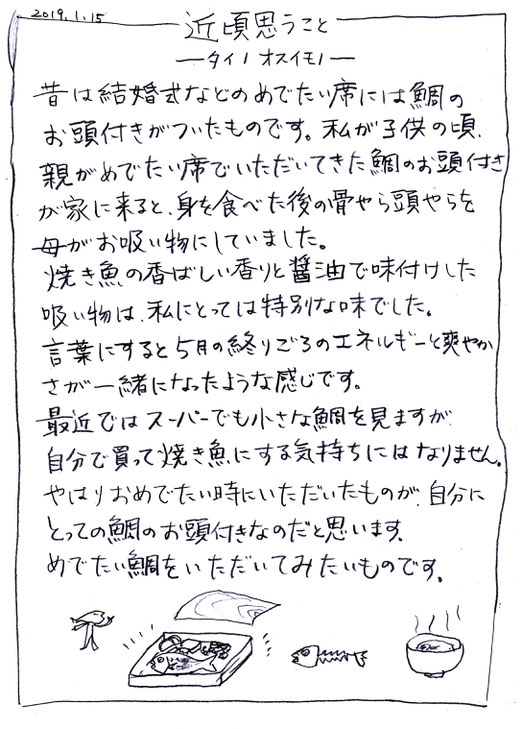 2019.1.15
近頃思うこと
―タイノオスイモノ―
昔は結婚式などのめでたい席には鯛の
お頭付きがついたものです。私が子供の頃、
親がめでたい席でいただいてきた鯛のお頭付き
が家に来ると、身を食べた後の骨やら頭やらを
母がお吸い物にしていました。
焼き魚の香ばしい香りと醬油で味付けした
吸い物は、私にとっては特別な味でした。
言葉にすると5月の終りごろのエネルギーと爽やか
さが一緒になったような感じです。
最近ではスーパーでも小さな鯛を見ますが
自分で買って焼き魚にする気持ちにはなりません。
やはりおめでたい時にいただいたものが、自分に
とっての鯛のお頭付きなのだと思います。
めでたい鯛をいただいてみたいものです。